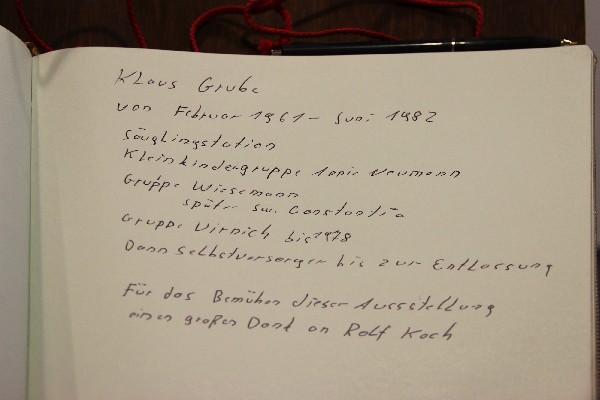 Klaus Grube
von Februar 1961 - Juni 1982
Säuglingstation
Kleinkindergruppe Neumann
Gruppe Wiesemann
später Sw. Constantia
Gruppe Virnich bis 1978
Dann Selbstversorger bis zur Entlassung
Für das Bemühen dieser Ausstellung
einen großen Dank an Rolf Koch